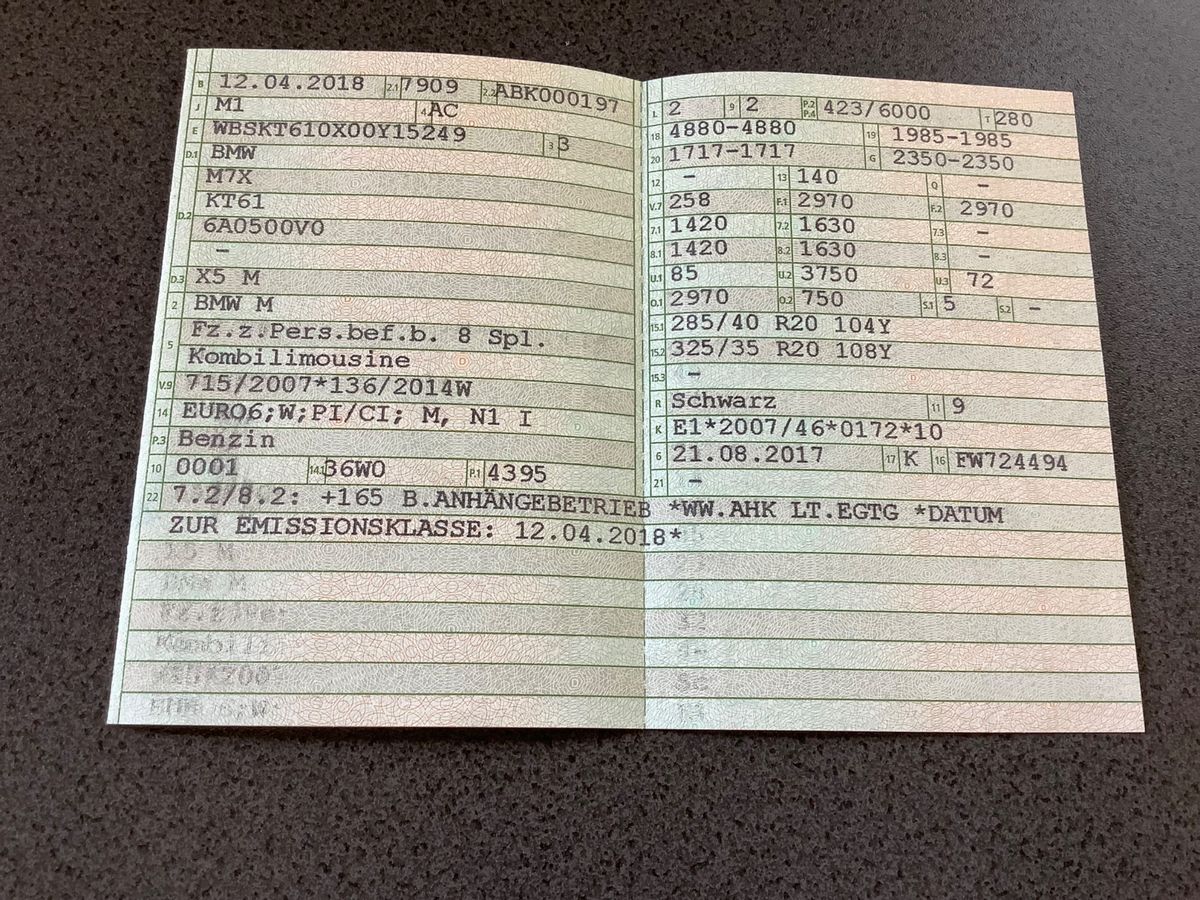 B 12.04.2018 2.1 7909 2.2 ABK000197
J M1 4 AC
E WBSKT610X00Y15249 3 3
D.1 BMW
M7X
KT61
D.2 6A0500V0
-
D.3 X5 M
2 BMW M
Fz.z.Pers.bef.b. 8 Spl.
5 Kombilimousine
V.9 715/2007*136/2014W
14 EURO6;W;PI/CI; M, N1 I
P.3 Benzin
10 0001 14.1 36W0 P.1 4395
L 2 9 2 P.2 P.4 423/6000 T 280
18 4880-4880 19 1985-1985
20 1717-1717 G 2350-2350
12 - 13 140 Q -
V.7 258 F.1 2970 F.2 2970
7.1 1420 7.2 1630 7.3 -
8.1 1420 8.2 1630 8.3 -
U.1 85 U.2 3750 U.3 72
O.1 2970 O.2 750 S.1 5 S.2 -
15.1 285/40 R20 104Y
15.2 325/35 R20 108Y
15.3 -
R Schwarz 11 9
K E1*2007/46*0172*10
6 21.08.2017 17 K 16 FW724494
21 -
22 7.2/8.2: +165 B.ANHÄNGEBETRIEB *WW.AHK LT.EGTG *DATUM
ZUR EMISSIONSKLASSE: 12.04.2018*
X5 M
BMW M